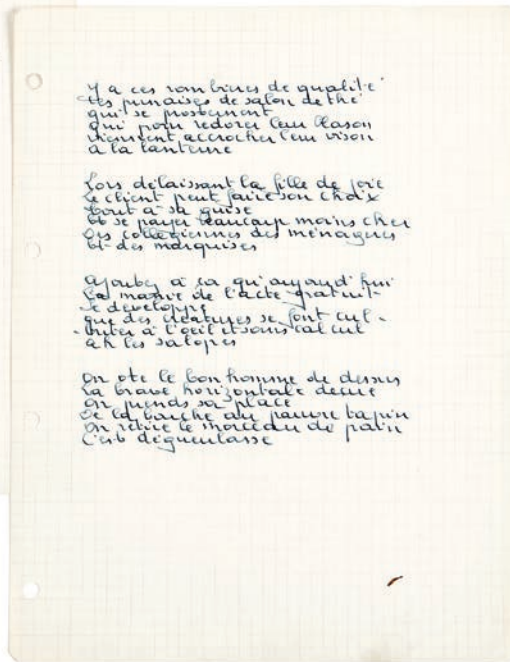 Y a ces rombières de qualité
Ces punaises de salon de thé
qui se prosternent
Qui pour redorer leur blason
Viennent accrocher leur vison
à la lanterne
Lors délaissant la fille de joie
Le client peut faire son choix
tout à sa guise
et se payer beaucoup moins cher
Des collégiennes des ménagères
Et des marquises
Ajoutez à ça qu'aujourd'hui
La manie de l'acte gratuit
se développe
que des créatures se font cul-
-buter à l'œil et sans calcul
ah les salopes
On ote le bonhomme de dessus
La brave horizontale décue
On prends sa place
De la bouche au pauvre tapin
On retire le morceau de pain
C'est dégueulasse